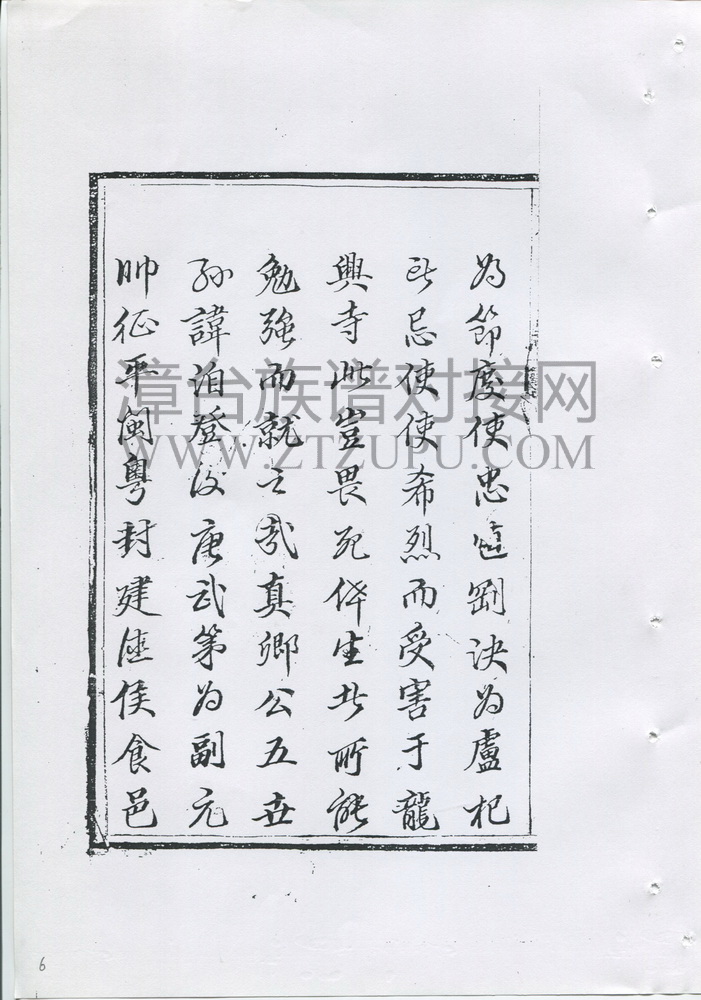 為節度使忠直剛決為盧杞
所忌使使希烈而受害于龍
興寺此豈畏死侔生者所能
勉強而就之哉真卿公五世
孫諱泊登後唐武第為副元
帥征平閩粵封建德侯食邑
漳台族谱对接网
WWW.ZTZUPU.COM
6